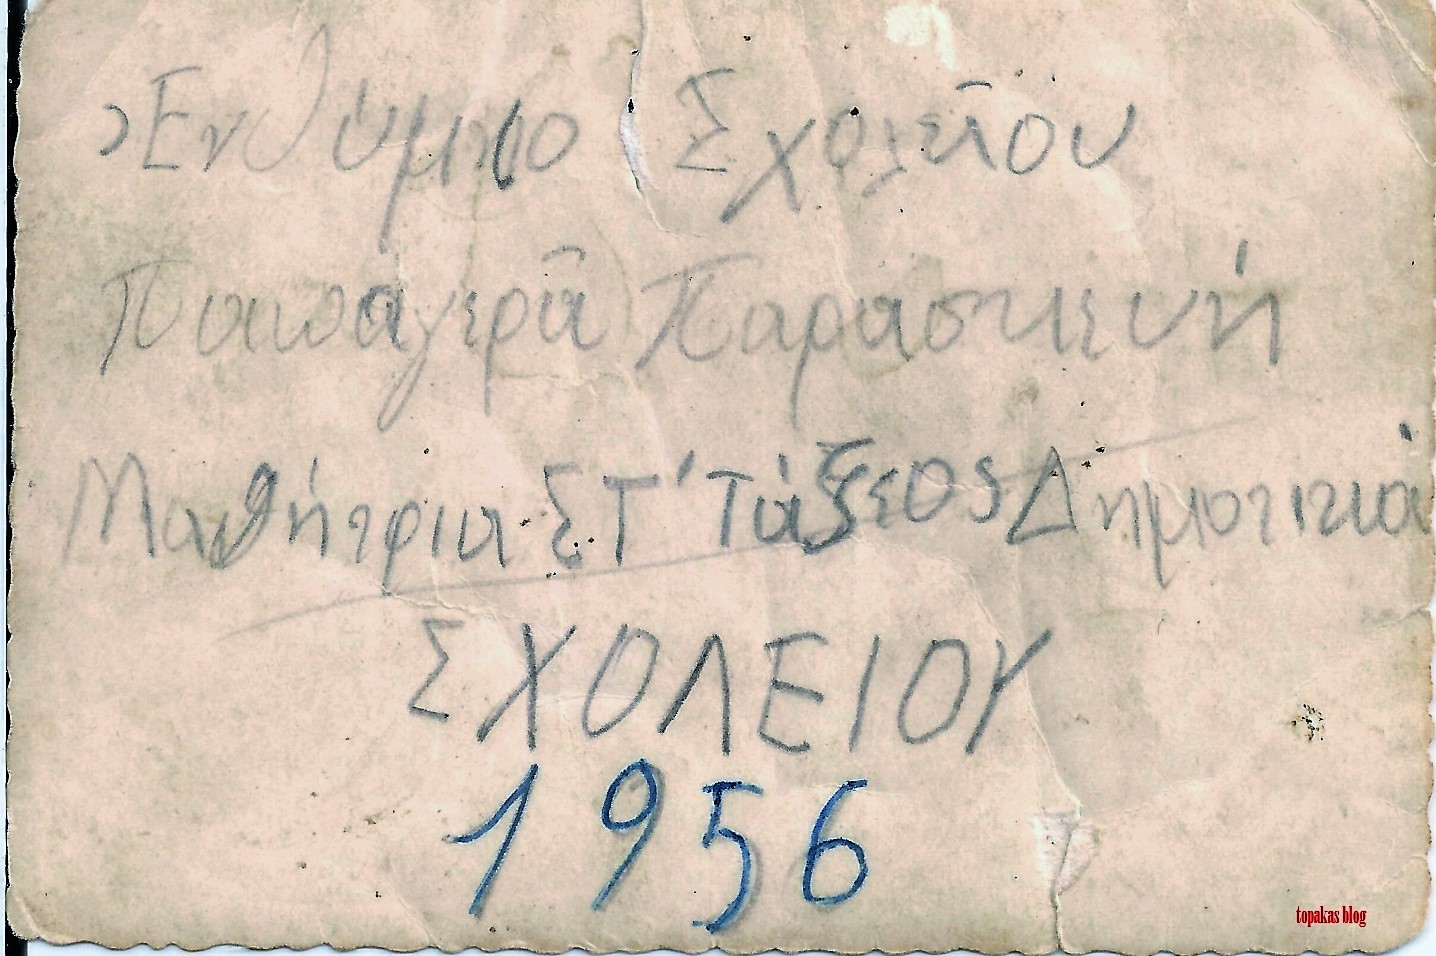 Ἐνθύμιο Σχολείου
Παπαγερᾶ Παρασκευή
Μαθήτρια ΣΤ΄ Τάξεος Δημοτικά
ΣΧΟΛΕΙΟΥ
1956
topakas blog